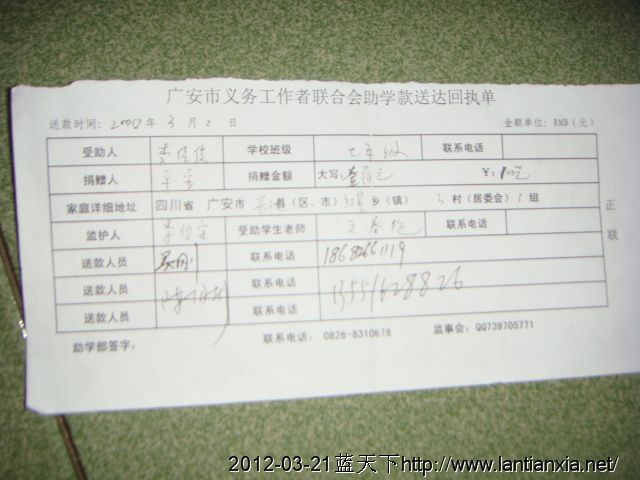 广安市义务工作者联合会助学款送达回执单
送款时间：2012年 3月2日 金额单位：RMB（元）
受助人 学校班级 七年级 联系电话
捐赠人 平安 捐赠金额 大写：壹佰元 ￥：100元
家庭详细地址 四川省 广安市 县（区、市） 乡（镇） 3村（居委会）1组
监护人 受助学生老师 联系电话
送款人员 联系电话 18682661119
送款人员 联系电话 13551628826
送款人员 联系电话
助学部签字： 联系电话：0826-8310678 监事会：QQ739705771
正联
2012-03-21蓝天下http://www.lantianxia.net/